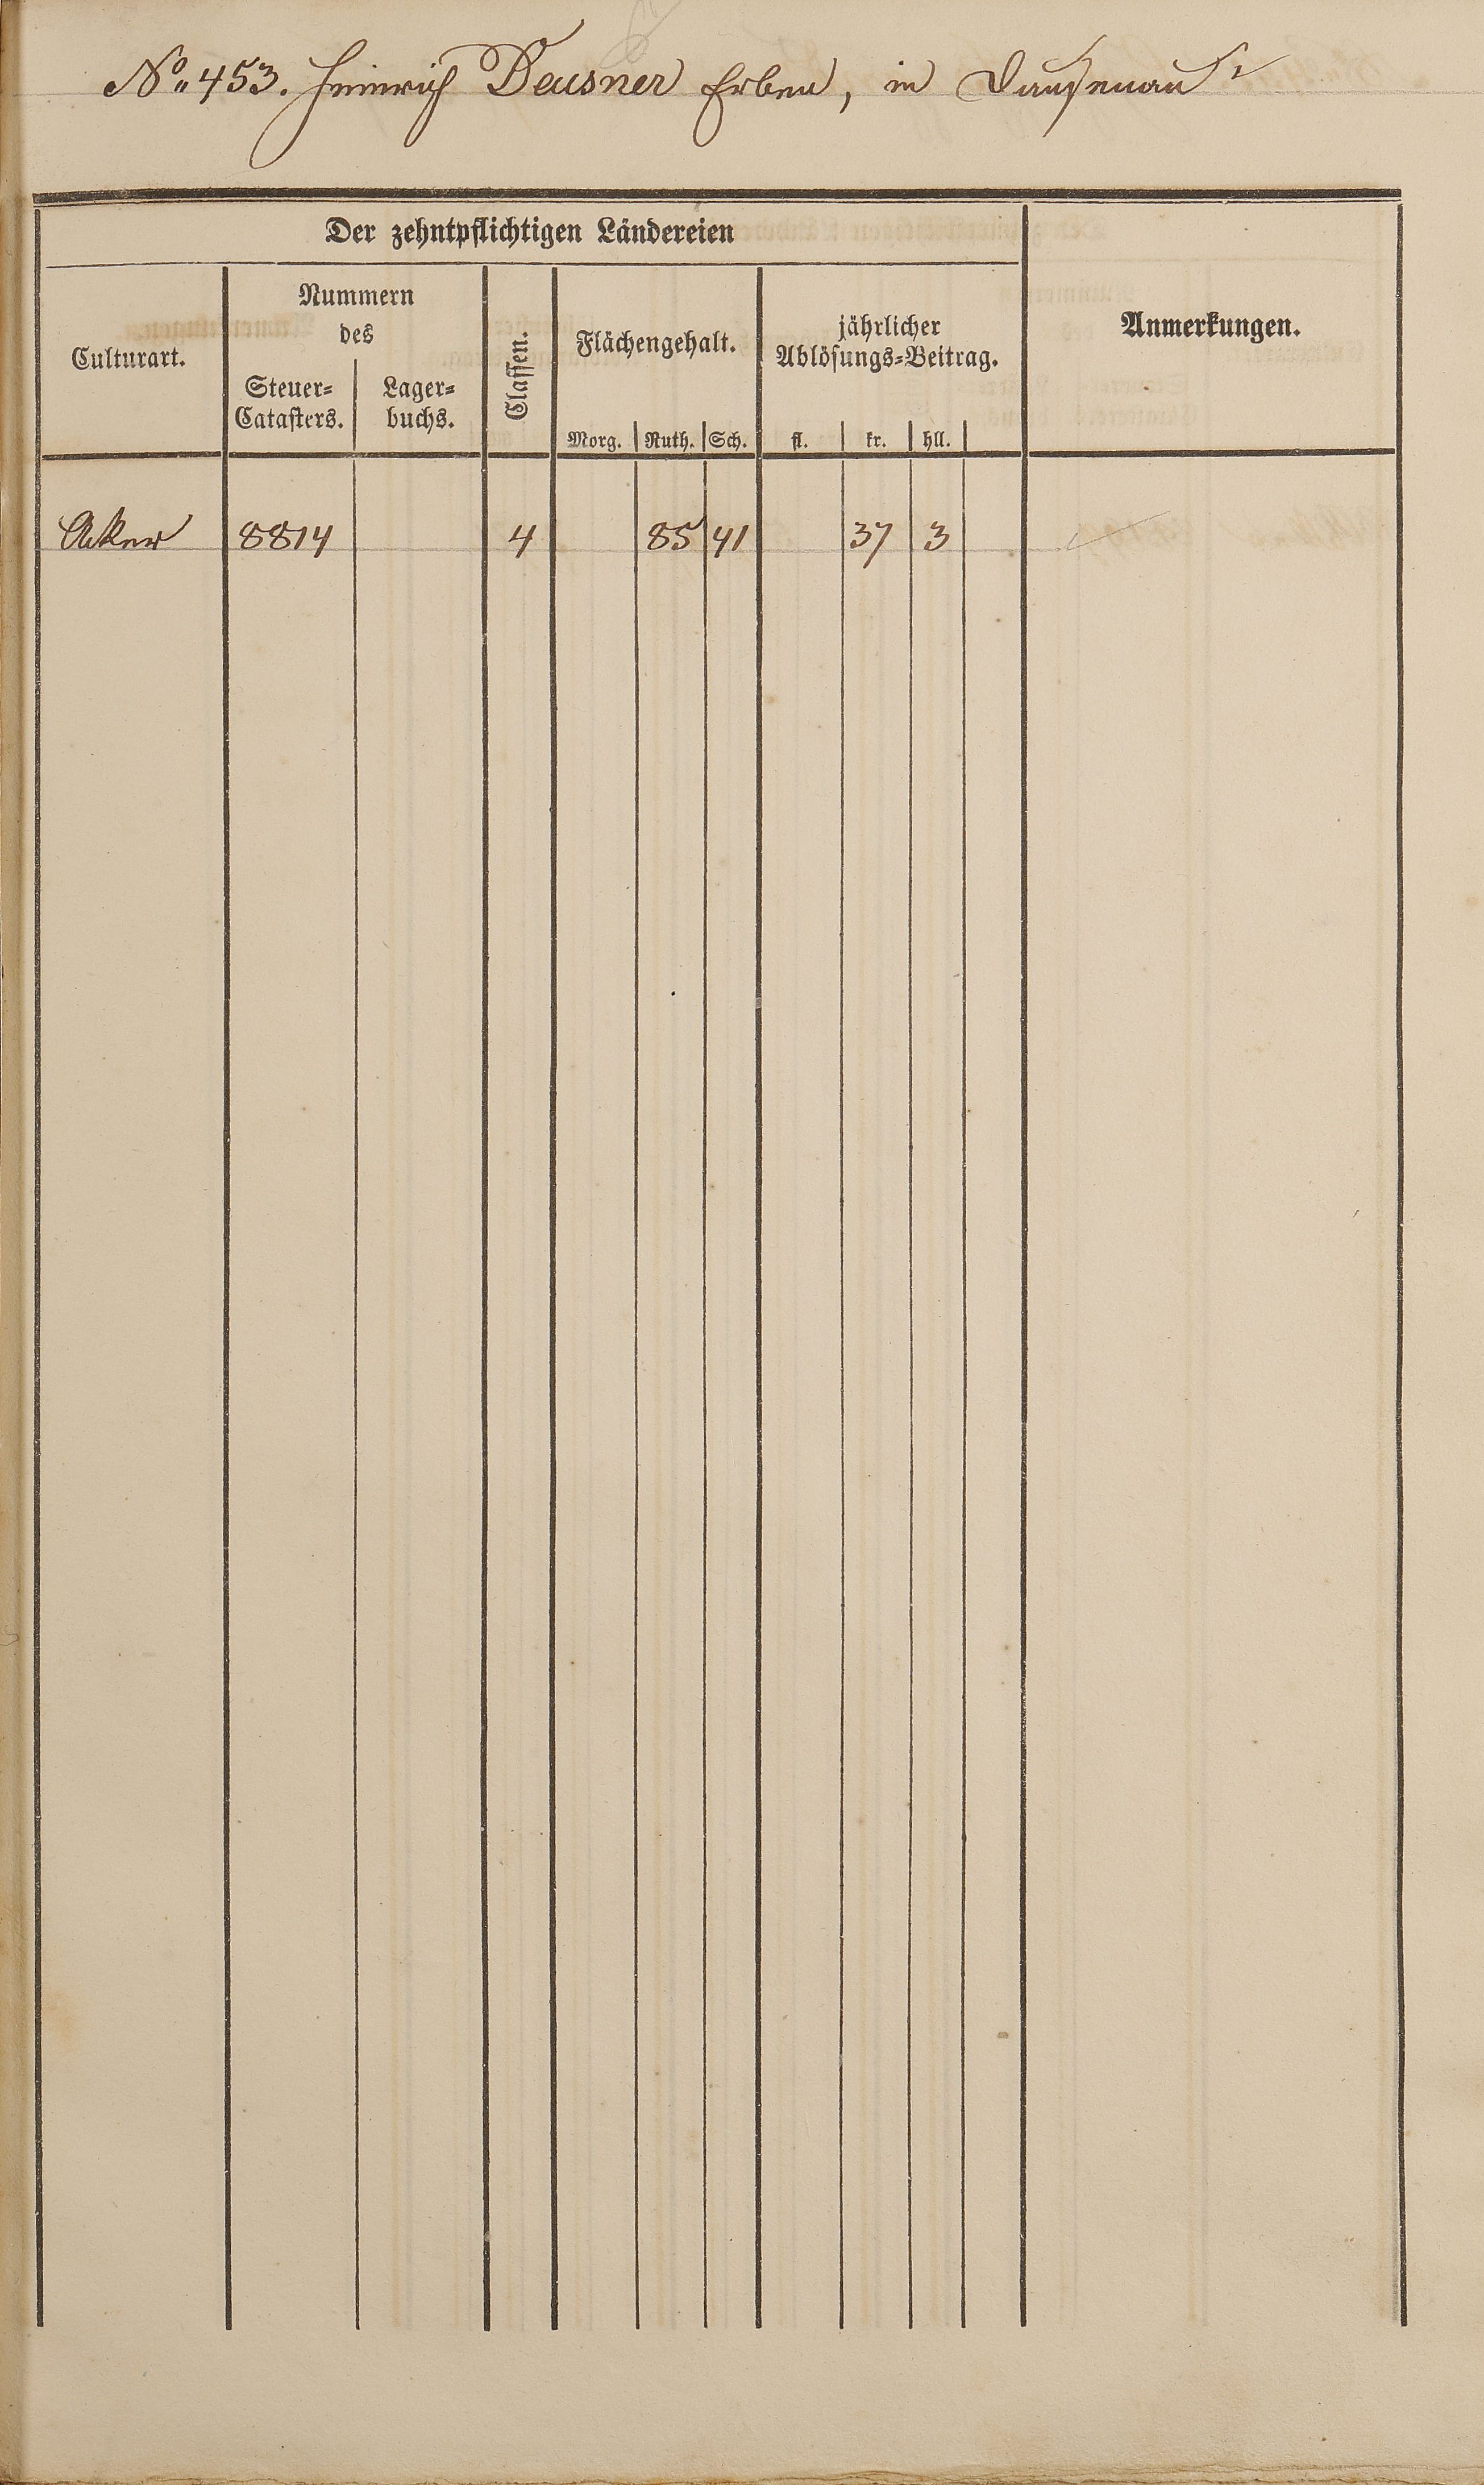 No. 453. Heinrich Deusner Erben, in Dausenau
Der zehntpflichtigen Ländereien
Culturart.
Nummern
des
Steuer-
Catasters.
Lager-
buchs.
Classen.
Flächengehalt.
Morg. Ruth. Sch.
jährlicher
Ablösungs-Beitrag.
fl. kr. hll.
Anmerkungen.
Acker 8814 4 85 41 37 3